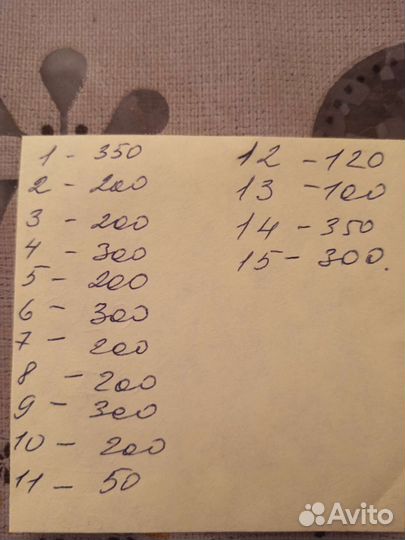 1 - 350
2 - 200
3 - 200
4 - 300
5 - 200
6 - 300
7 - 200
8 - 200
9 - 300
10 - 200
11 - 50
12 - 120
13 - 100
14 - 350
15 - 300.
Avito